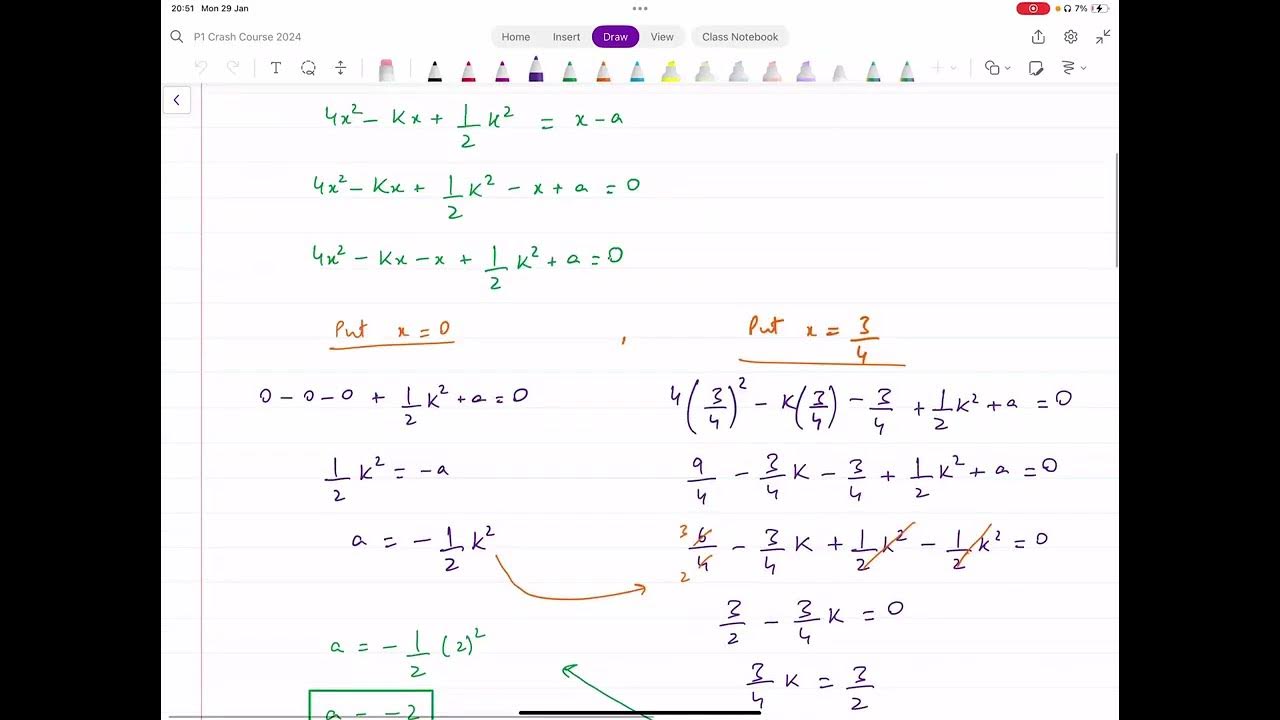 20:51 Mon 29 Jan
7%
P1 Crash Course 2024
Home Insert Draw View Class Notebook
4x² - Kx + 1/2 K² = x - a
4x² - Kx + 1/2 K² - x + a = 0
4x² - Kx - x + 1/2 K² + a = 0
Put x = 0 , Put x = 3/4
0 - 0 - 0 + 1/2 K² + a = 0
1/2 K² = -a
a = -1/2 K²
a = -1/2 (2)²
a = -2
4(3/4)² - K(3/4) - 3/4 + 1/2 K² + a = 0
9/4 - 3/4 K - 3/4 + 1/2 K² + a = 0
3 6/4 2 - 3/4 K + 1/2 K² - 1/2 K² = 0
3/2 - 3/4 K = 0
3/4 K = 3/2